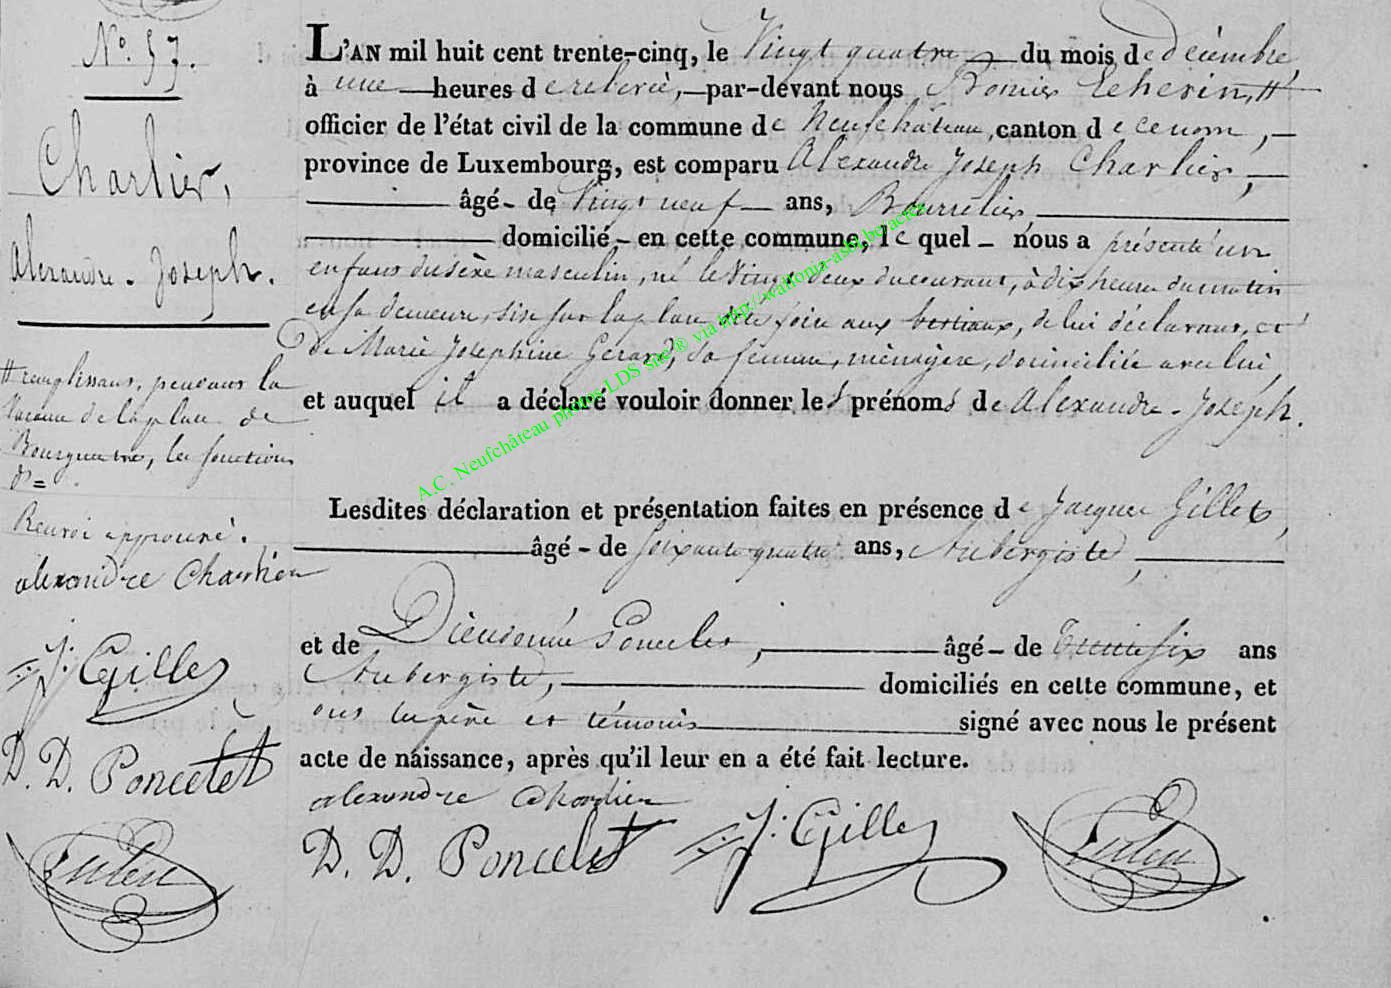 N.° 57.
Charlier,
Alexandre-Joseph.
# remplissant, pendant la
vacance de la place de
Bourguemre, les fonctions
d'=
Renvoi approuvé.
alexandre Charlier
J. Gillet
D. D. Poncelet
L'AN mil huit cent trente-cinq, le Vingt quatre du mois de décembre
à une heures de relevée, par-devant nous #
officier de l'état civil de la commune de Neufchâteau, canton de ce nom,
province de Luxembourg, est comparu Alexandre Joseph Charlier,
âgé de Vingt neuf ans, Bourrelier
domicilié en cette commune, lequel nous a présenté un
enfant du sexe masculin, né le Vingt deux du courant, à dix heures du matin
en sa demeure, sise sur la place de la foire aux bestiaux, de lui déclarant, et
de Marie Josephine Gerard, sa femme, ménagère, domiciliée avec lui,
et auquel il a déclaré vouloir donner les prénoms de Alexandre-Joseph.
Lesdites déclaration et présentation faites en présence de Jacques Gillet,
âgé de soixante-quatre ans, Aubergiste,
et de Dieudonné Poncelet, âgé de Trente six ans
Aubergiste, domiciliés en cette commune, et
ont le père et témoins signé avec nous le présent
acte de naissance, après qu'il leur en a été fait lecture.
alexandre Charlier
D. D. Poncelet J. Gillet
A.C. Neufchâteau photos LDS site ® via http://wallonia-asbl.be/actes